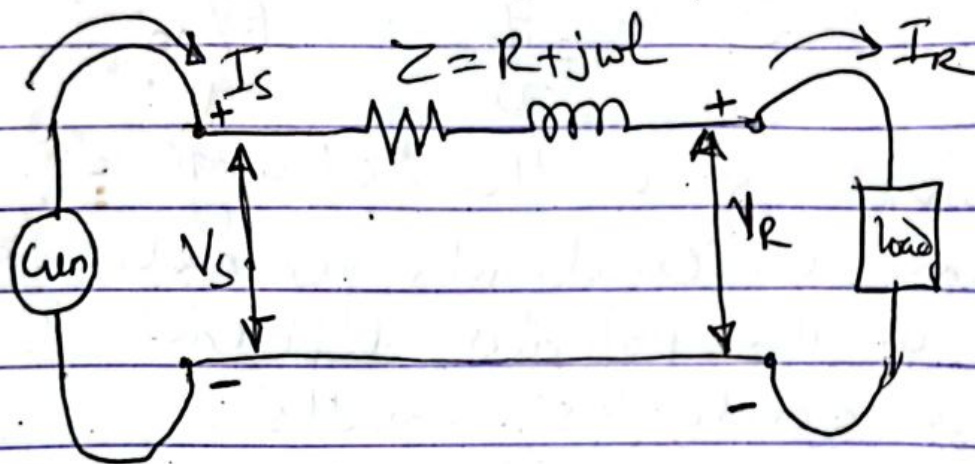 I_S
Z = R + jwl
I_R
+
+
Gen
V_S
V_R
load
-
-